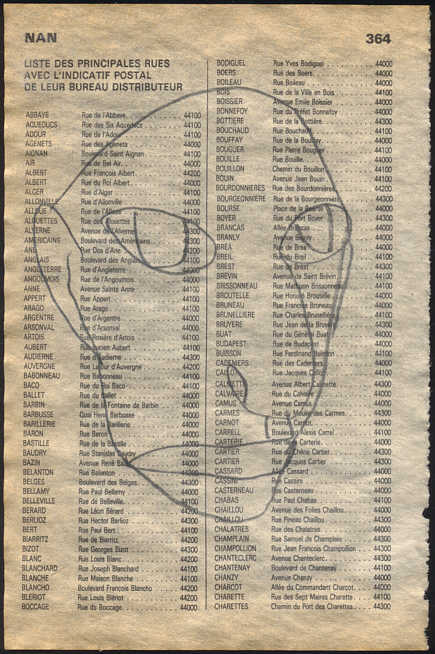 NAN
364
LISTE DES PRINCIPALES RUES
AVEC L'INDICATIF POSTAL
DE LEUR BUREAU DISTRIBUTEUR
ABBAYE Rue de l'Abbaye 44100
AQUEDUCS Rue des Six Aqueducs 44100
ADOUR Rue de l'Adour 44100
AGENETS Rue des Agenets 44000
AIGNAN Boulevard Saint Aignan 44100
AIR Rue de Bel Air 44000
ALBERT Rue François Albert 44200
ALBERT Rue du Roi Albert 44000
ALGER Rue d'Alger 44100
ALLONVILLE Rue d'Allonville
ALLIER Rue de l'Allier
ALOUETTES Rue des Alouettes
AUVERNE Avenue d'Auverne
AMERICAINE Boulevard des Américains
ANE Rue Dos d'Ane
ANGLAIS Boulevard des Anglais 44100
ANGLETERRE Rue d'Angleterre 44000
ANGOUMOIS Rue de l'Angoumois
ANNE Avenue Sainte Anne 44100
APPERT Rue Appert 44100
ARAGO Rue Arago 44100
ARGENTRE Rue d'Argentré 44000
ARSONVAL Rue d'Arsonval 44000
ARTOIS 44100
AUBERT Rue Lucien Aubert 44100
AUDIERNE Rue d'Audierne 44300
AUVERGNE Rue Latour d'Auvergne 44200
BABONNEAU Rue Babonneau 44100
BACO Rue du Pas Baco 44100
BALLET Rue du Ballet 44000
BARBIN Rue de la Fontaine de Barbin 44000
BARBUSSE Quai Henri Barbusse 44000
BARILLERIE Rue de la Barillerie 44000
BARON Rue Baron 44000
BASTILLE Rue de la Bastille 44000
BAUDRY Rue Stanislas Baudry 44000
BAZIN Avenue René Bazin
BELANTON Rue Belanton 44300
BELGES Boulevard des Belges 44300
BELLAMY Rue Paul Bellamy 44000
BELLEVILLE Rue de Belleville 44100
BERARD Rue Léon Bérard 44200
BERLIOZ Rue Hector Berlioz 44300
BERT Rue Paul Bert 44100
BIARRITZ Rue de Biarritz 44200
BIZOT Rue Georges Bizot 44300
BLANC Rue Louis Blanc 44200
BLANCHARD Rue Joseph Blanchard 44100
BLANCHE Rue Maison Blanche 44100
BLANCHO Boulevard François Blancho 44200
BLERIOT Rue Louis Blériot 44200
BOCCAGE Rue du Boccage 44000
BODIGUEL Rue Yves Bodiguel 44000
BOERS Rue des Boers 44000
BOILEAU Rue Boileau 44000
BOIS Rue de la Ville en Bois 44100
BOISSIER Avenue Emile Boissier 44000
BONNEFOY Rue du Préfet Bonnefoy 44000
BOTTIERE Rue de la Bottière 44300
BOUCHAUD Rue Bouchaud 44100
BOUFFAY Rue de la Bouffay 44000
BOUGUER Rue Pierre Bouguer 44100
BOUILLE Rue Bouillé 44000
BOUILLON Chemin du Bouillon 44100
BOUIN Avenue Jean Bouin 44100
BOURDONNIERES Rue des Bourdonnières 44200
BOURGEONNIERE Rue de la Bourgeonnière 44300
BOURSE Place de la Bourse
BOYER Rue du Port Boyer 44300
BRANCAS Allée Brancas 44000
BRANLY Avenue Branly
BREA Rue de Bréa 44000
BREIL Rue du Breil 44100
BREST Rue de Brest
BREVIN Avenue de Saint Brévin 44100
BRISSONNEAU Rue Mathurin Brissonneau 44100
BROUTELLE Rue Honoré Broutelle
BRUNEAU Rue François Bruneau 44000
BRUNELLIERE Rue Charles Brunellière 44100
BRUYERE Rue Jean de la Bruyère 44300
BUAT Rue du Général Buat 44000
BUDAPEST Rue de Budapest 44000
BUISSON Rue Ferdinand Buisson 44100
CADENIERS Rue des Cadeniers 44000
Rue Jacques
Avenue Albert Calmette 44300
CALVAIRE Rue du Calvaire 44000
CAMUS Avenue Camus 44000
CARMES Rue du Moulin des Carmes 44300
CARNOT Avenue Carnot 44000
CARREL Boulevard Alexis Carrel 44100
CARTERIE Rue de la Carterie 44000
CARTIER Rue du Chêne Cartier 44300
CARTIER Rue Jacques Cartier 44300
CASSARD Allée Cassard 44000
CASSINI Rue Cassini 44000
CASTERNEAU Rue Casterneau 44000
CHABAS Rue Paul Chabas 44100
CHAILLOU Avenue des Folies Chaillou 44000
CHAILLOU Rue Pineau Chaillou 44300
CHALATRES Rue des Chalatres 44000
CHAMPLAIN Rue Samuel de Champlain 44300
CHAMPOLLION Rue Jean François Champollion 44300
CHANTECLERC Avenue Chanteclerc 44300
CHANTENAY Boulevard de Chantenay 44100
CHANZY Avenue Chanzy 44000
CHARCOT Allée du Commandant Charcot 44000
CHARETTE Rue des Sept Maires Charette 44100
CHARETTES Chemin du Port des Charettes 44300